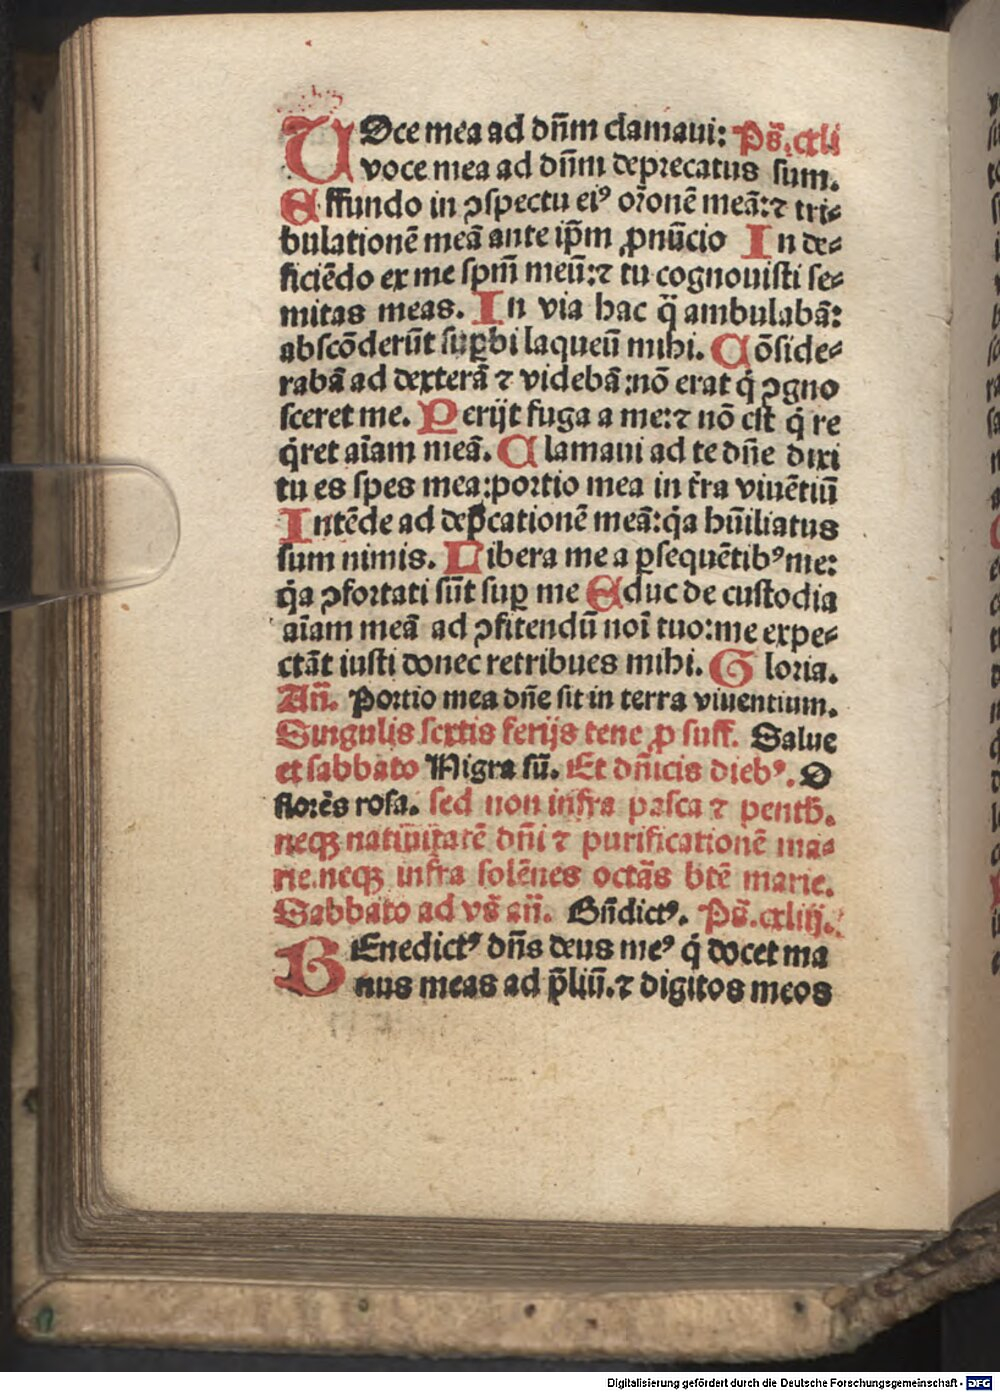 VOce mea ad dn̄m clamaui: Ps̄. cxli
voce mea ad dn̄m deprecatus sum.
Effundo in ꝯspectu eiꝰ or̄onē meā: ⁊ tri⸗
bulationē meā ante ip̄m ꝓnūcio In de⸗
ficiēdo ex me sp̄m meū: ⁊ tu cognouisti se⸗
mitas meas. In via hac q̄ ambulabā:
abscōderūt suꝑbi laqueū mihi. Cōside⸗
rabā ad dexterā ⁊ videbā: nō erat q̇ ꝯgno
sceret me. Perijt fuga a me: ⁊ nō est q̇ re
q̇ret aīam meā. Clamaui ad te dn̄e dixi
tu es spes mea: portio mea in t̄ra viuētiū
Intēde ad dep̄cationē meā: q̇a hūiliatus
sum nimis. Libera me a ꝑsequētibꝰ me:
q̇a ꝯfortati sūt suꝑ me Educ de custodia
aīam meā ad ꝯfitendū noī tuo: me expe⸗
ctāt iusti donec retribues mihi. Gloria.
Añ. Portio mea dn̄e sit in terra viuentium.
Singulis sextis ferijs tene ꝓ suff. Salue
et sabbato Nigra sū. Et dn̄icis diebꝰ. O
florēs rosa. sed non infra pasca ⁊ penth̄.
neqꝫ natiuitatē dn̄i ⁊ purificationē ma⸗
rie. neqꝫ infra solēnes octās btē marie.
Sabbato ad vs̄ añ. Bn̄dictꝰ. Ps̄. cxliij.
BEnedictꝰ dn̄s deus meꝰ q̇ docet ma
nus meas ad p̄liū. ⁊ digitos meos
Digitalisierung gefördert durch die Deutsche Forschungsgemeinschaft - DFG